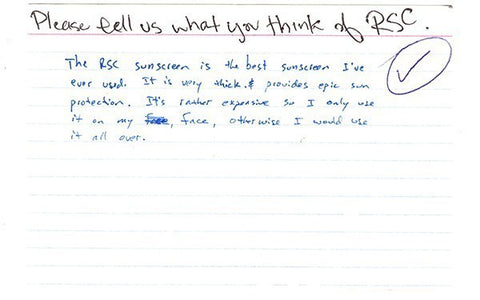 Please tell us what you think of RSC.
The RSC sunscreen is the best sunscreen I've
ever used. It is very thick & provides epic sun
protection. It's rather expensive so I only use
it on my face, face, otherwise I would use
it all over.